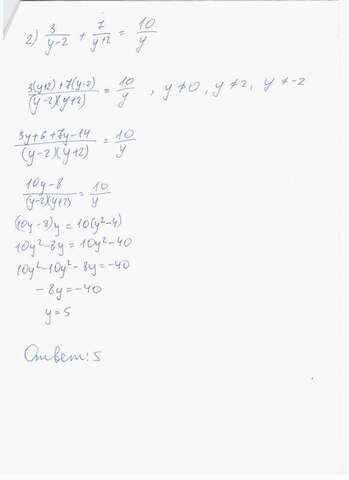 2) 3/(y-2) + 7/(y+2) = 10/y
(3(y+2)+7(y-2))/((y-2)(y+2)) = 10/y , y≠0, y≠2, y≠-2
(3y+6+7y-14)/((y-2)(y+2)) = 10/y
(10y-8)/((y-2)(y+2)) = 10/y
(10y-8)y = 10(y²-4)
10y²-8y = 10y²-40
10y²-10y²-8y = -40
-8y = -40
y = 5
Ответ: 5